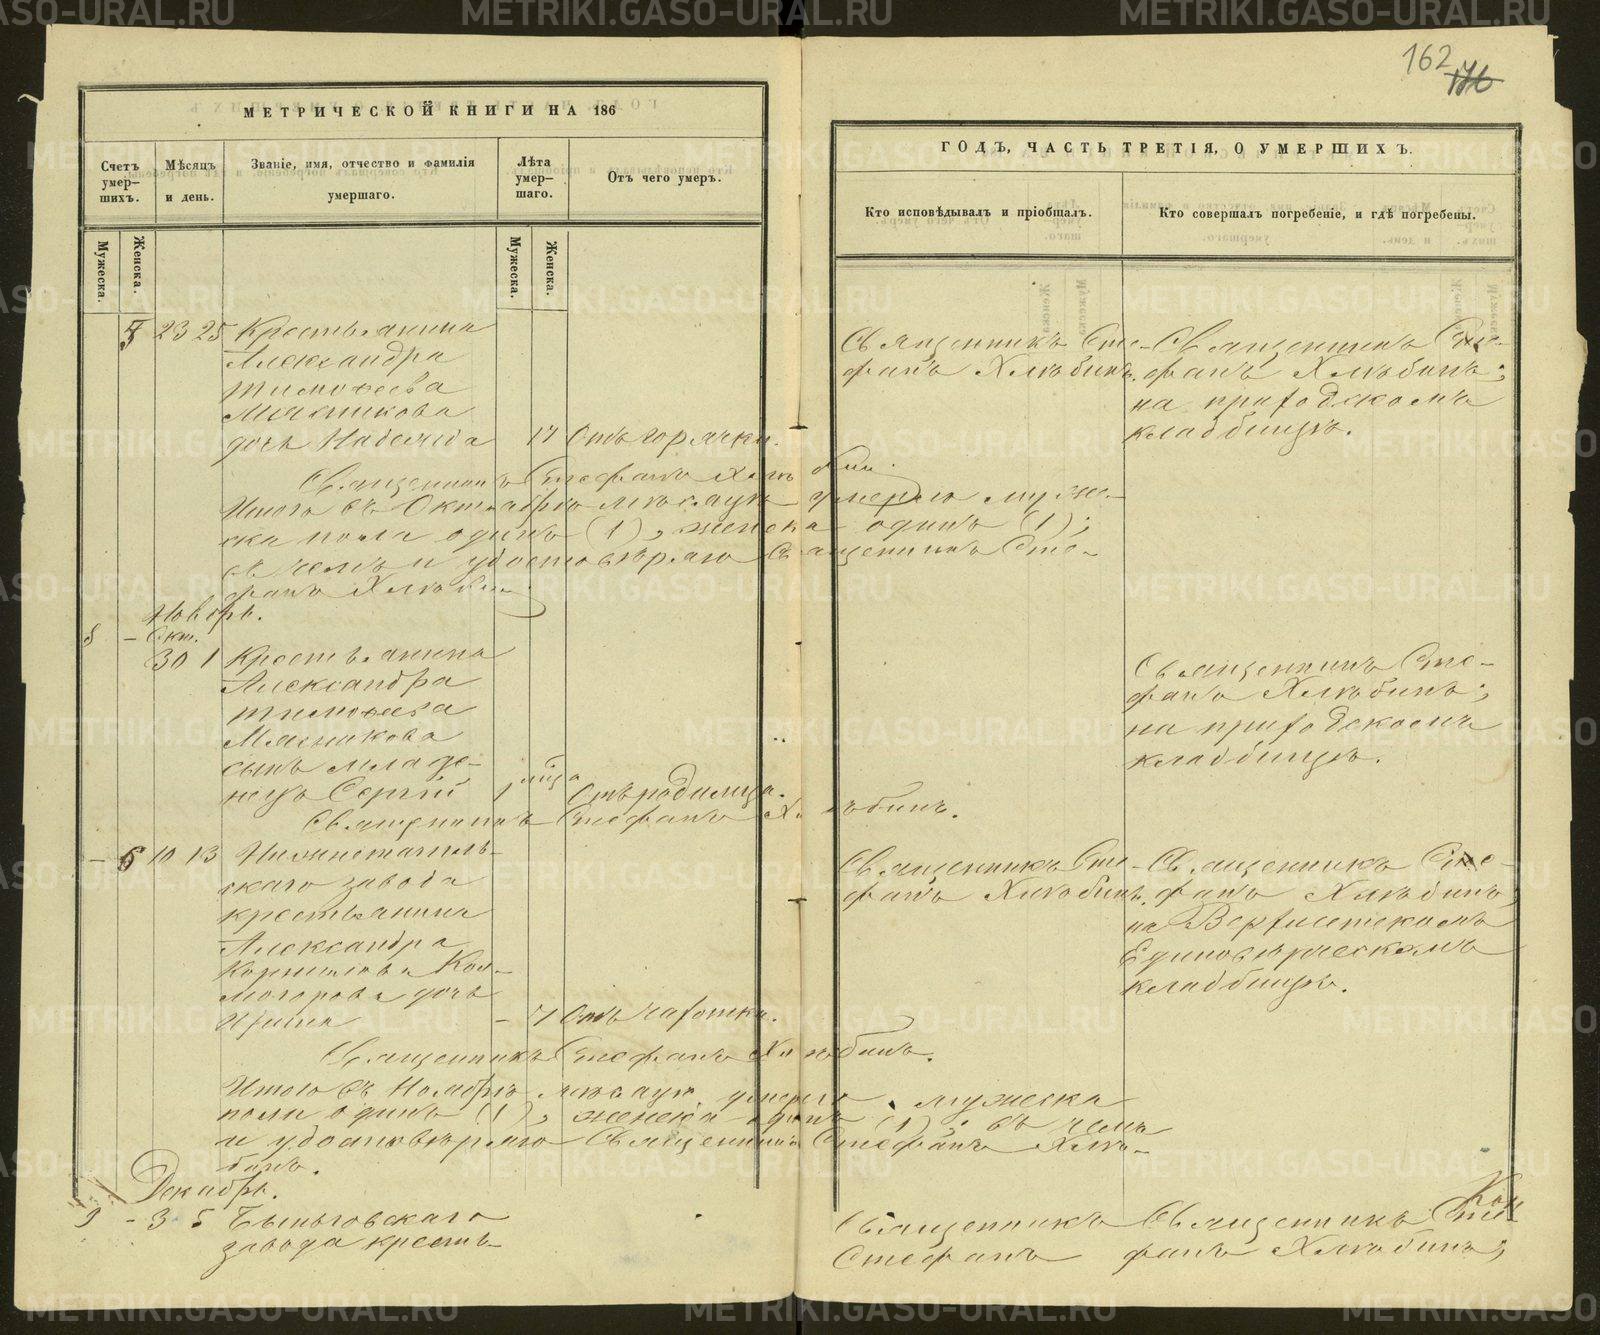 162 176
МЕТРИЧЕСКОЙ КНИГИ НА 186
ГОДЪ, ЧАСТЬ ТРЕТІЯ, О УМЕРШИХЪ.
Счетъ умер-
шихъ.
Мѣсяцъ
и день.
Званіе, имя, отчество и фамилія
умершаго.
Лѣта
умер-
шаго.
Отъ чего умеръ.
Кто исповѣдывалъ и пріобщалъ.
Кто совершалъ погребеніе, и гдѣ погребены.
Мужеска.
Женска.
Мужеска.
Женска.
23 25 Крестьянина
Александра
Тимоѳеева
Мясникова
дочь Надежда 17 Отъ горячки.
Священникъ Сте-
фанъ Хлѣбинъ.
Священникъ Сте-
фанъ Хлѣбинъ;
на приходскомъ
кладбищѣ.
Священникъ Стефанъ Хлѣбин.
Итого въ Октябрѣ мѣсяцѣ умерло муже-
ска пола одинъ (1), женска одинъ (1);
въ чемъ и удостовѣряю Священникъ Сте-
фанъ Хлѣбин
Ноябрь.
8 - Окт.
30 1 Крестьянина
Александра
Тимоѳеева
Мясникова
сынъ младе-
нецъ Сергій 1 мѣсяца Отъ родимца.
Священникъ Сте-
фанъ Хлѣбинъ;
на приходскомъ
кладбищѣ.
Священникъ Стефанъ Хлѣбинъ.
- 6 10 13 Нижнетагиль-
скаго завода
крестьянина
Александра
Корнилова Кол-
могорова дочь
Ирина - 7 Отъ чахотки.
Священникъ Сте-
фанъ Хлѣбинъ.
Священникъ Сте-
фанъ Хлѣбинъ;
на Верхисетскомъ
Единовѣрческомъ
кладбищѣ.
Священникъ Стефанъ Хлѣбинъ.
Итого въ Ноябрѣ мѣсяцѣ умерло мужеска
пола одинъ (1), женска одинъ (1); въ чемъ
и удостовѣряю Священникъ Стефанъ Хлѣ-
бинъ.
Декабрь.
9 - 3 5 Быньговскаго
завода кресть-
Священникъ
Стефанъ
Священникъ Сте-
фанъ Хлѣбинъ;
METRIKI.GASO-URAL.RU